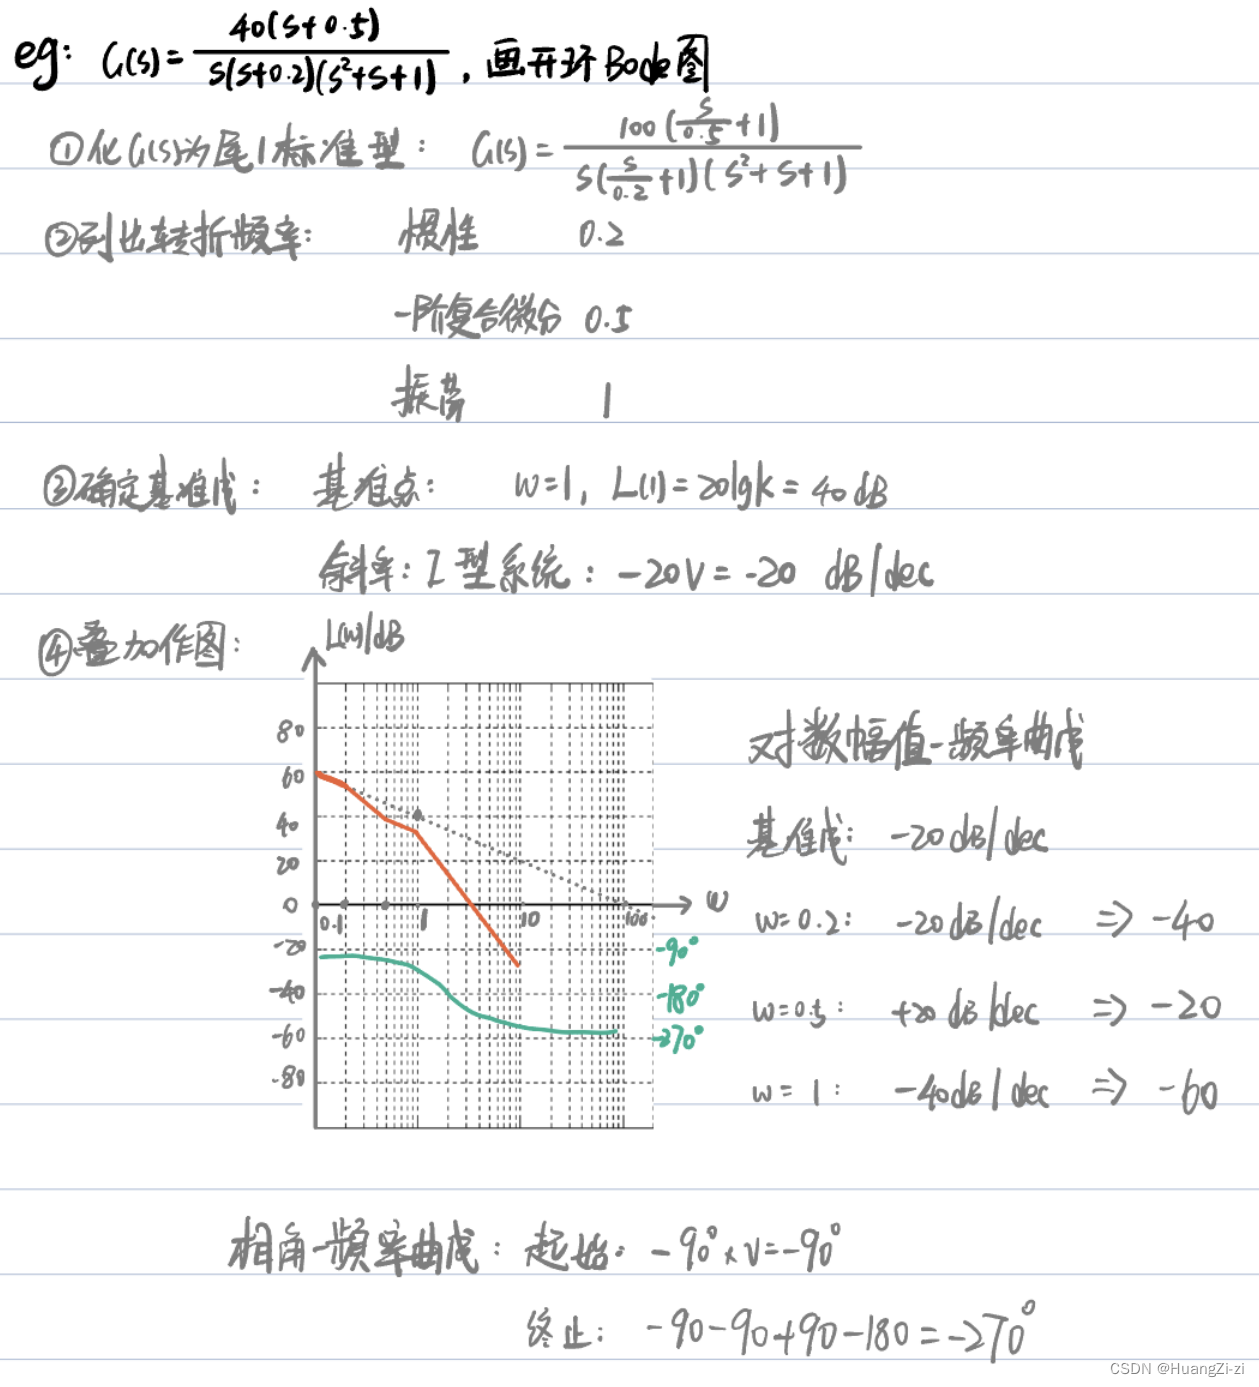 eg: G(s)= 40(s+0.5) / s(s+0.2)(s²+s+1) , 画开环Bode图
①化G(s)为尾1标准型: G(s)= 100(s/0.5+1) / s(s/0.2+1)(s²+s+1)
②列出转折频率: 惯性 0.2
一阶复合微分 0.5
振荡 1
③确定基准线: 基准点: w=1, L(1)=20lgk=40dB
斜率: I型系统: -20V=-20 dB/dec
④叠加作图:
L(w)/dB
80
60
40
20
0
-20
-40
-60
-80
0.1 1 10 100 ω
-90°
-180°
-270°
对数幅值-频率曲线
基准线: -20dB/dec
w=0.2: -20dB/dec => -40
w=0.5: +20dB/dec => -20
w=1: -40dB/dec => -60
相角-频率曲线: 起始: -90°×V=-90°
终止: -90-90+90-180=-270°
CSDN @HuangZi-zi